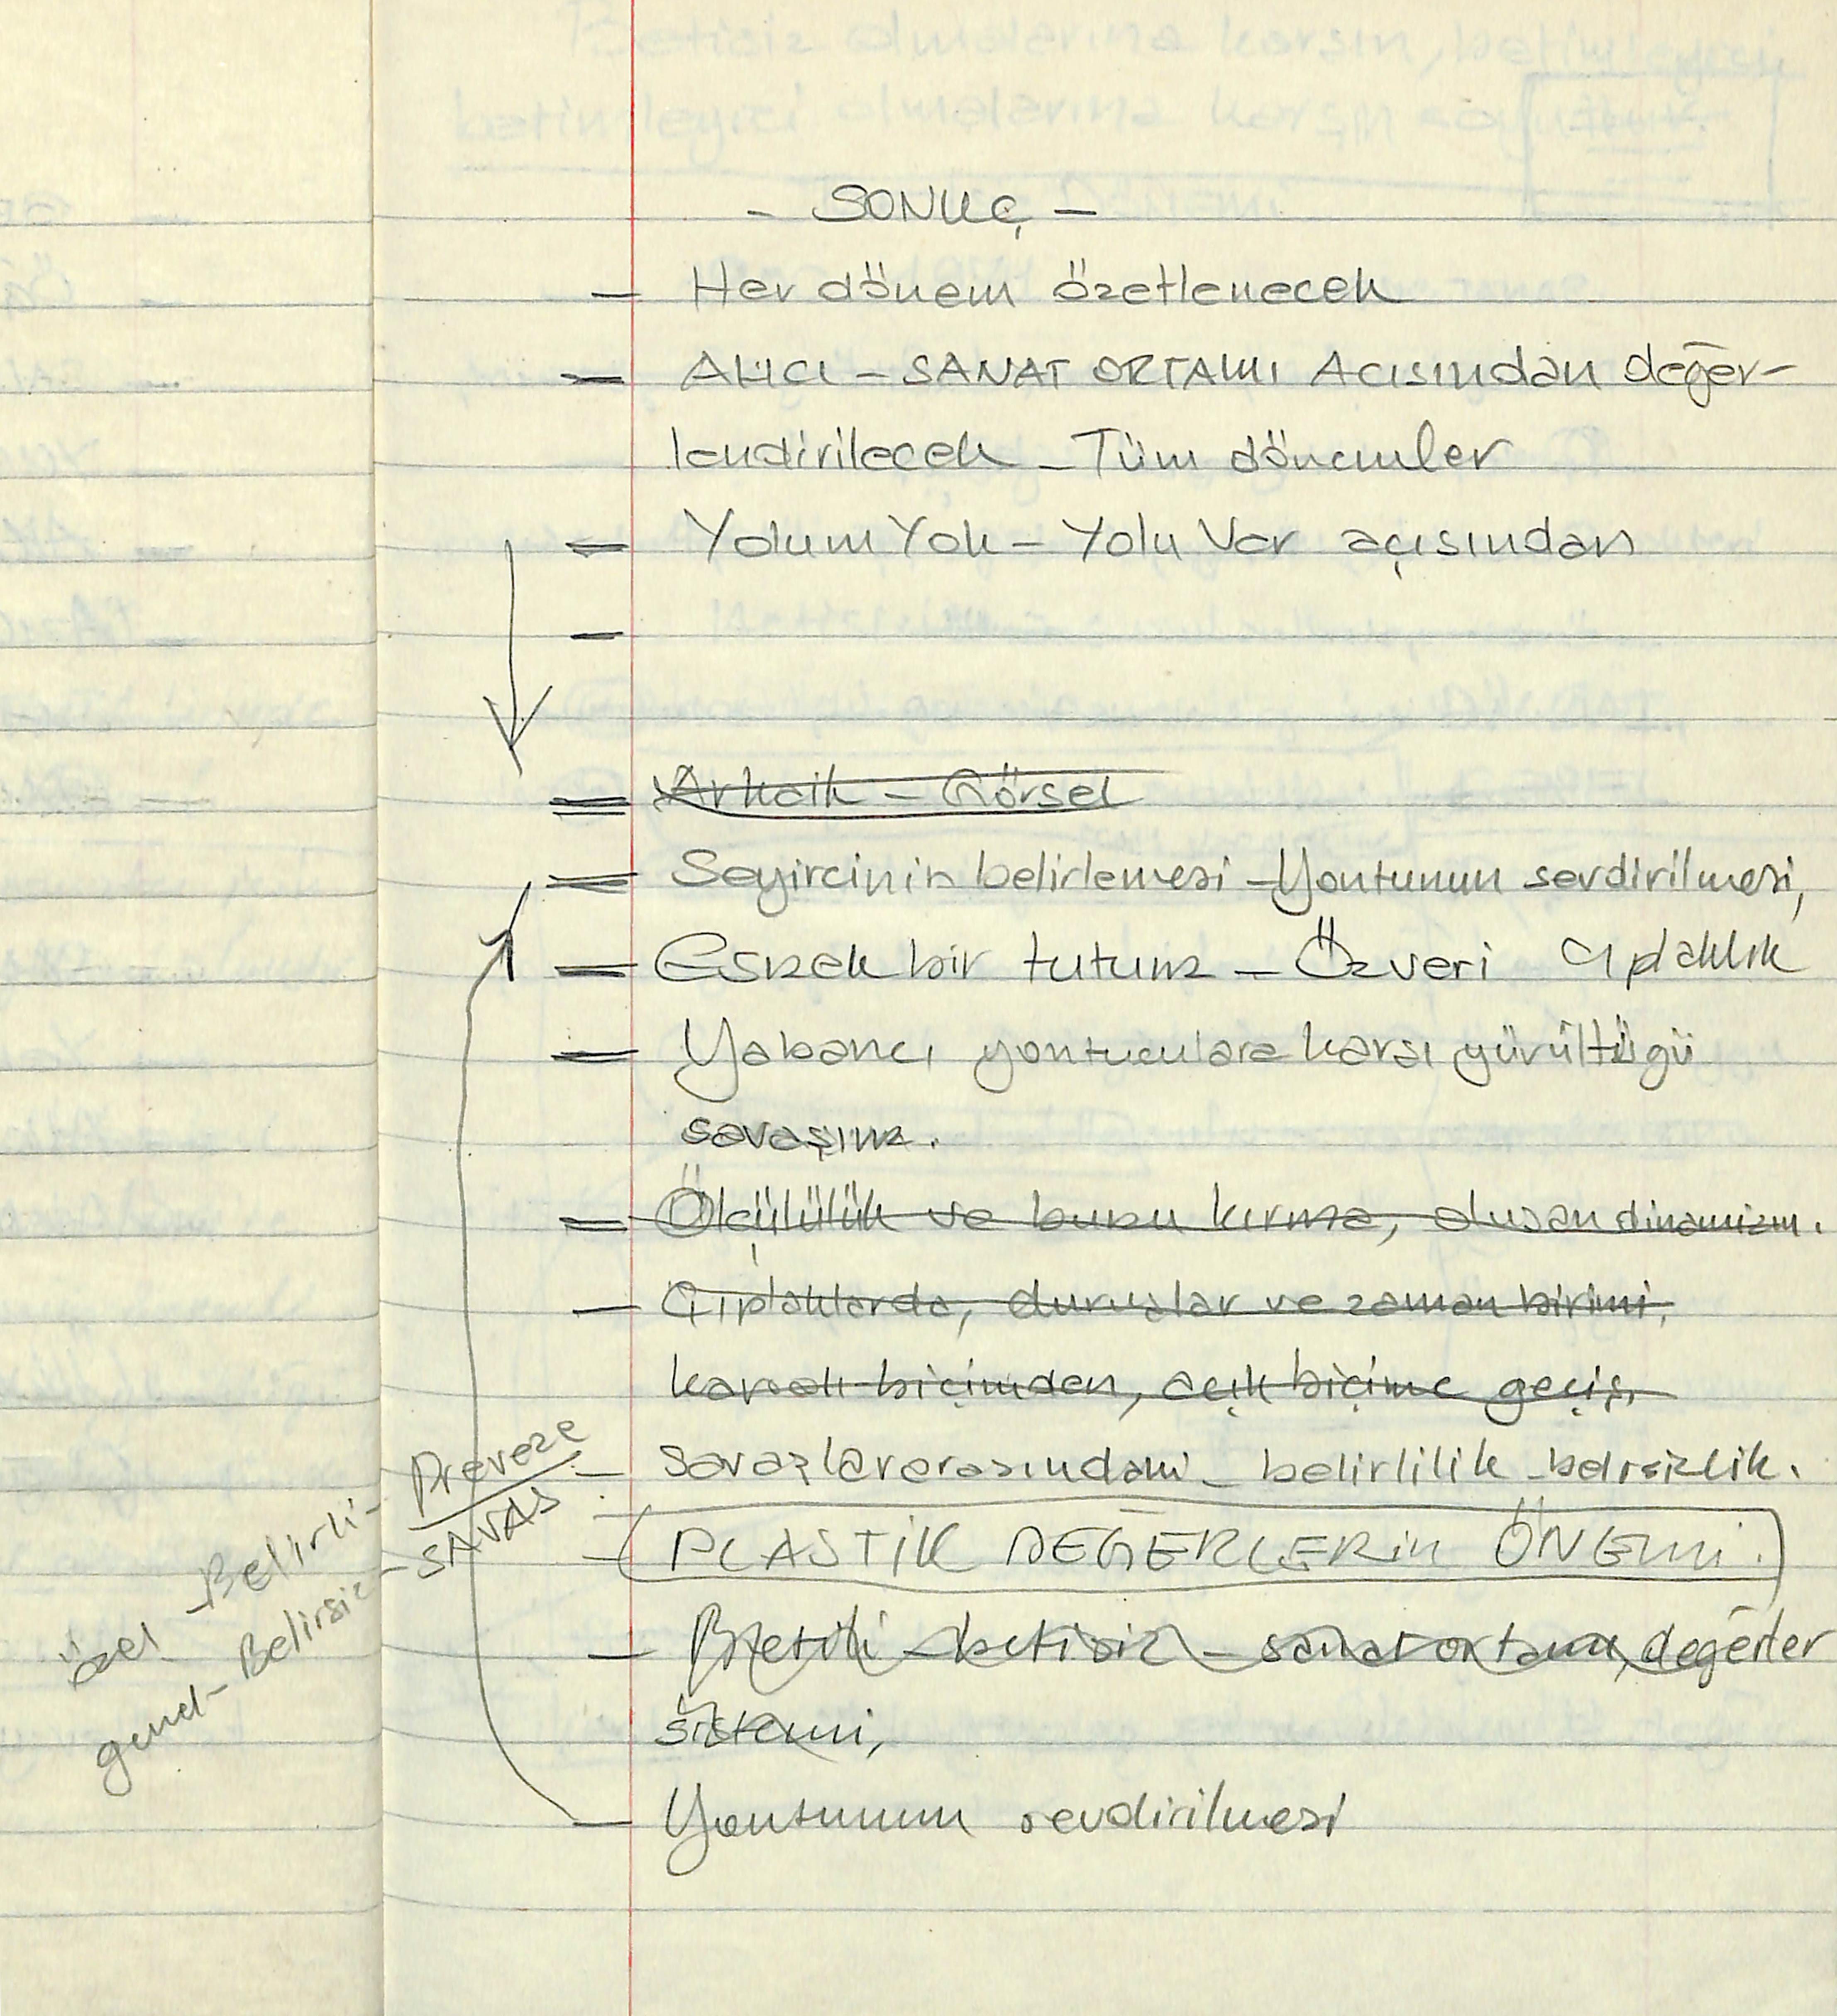 - SONUÇ -
- Her dönem özetlenecek
- Alıcı - SANAT ORTAMI Açısından değer-
lendirilecek - Tüm dönemler
- Yolum Yok - Yolu Var açısından
-
- Arkaik - Görsel
- Seyircinin belirlemesi - Yontunun sevdirilmesi,
- Esnek bir tutum - Özveri Çıplaklık
- Yabancı yontuculara karşı yürüttüğü
savaşım.
- Ölçülülük ve bunu kırma, oluşan dinamizm.
- Çıplaklarda, duruşlar ve zaman birimi,
kapalı biçimden, açık biçime geçiş,
- Savaşlar arasındaki - belirlilik - belirsizlik.
- PLASTİK DEĞERLERİN ÖNEMİ.
- Betili - betisiz - sanat ortamı, değerler
sistemi,
- Yontunun sevdirilmesi
Preveze
SAVAŞ
özel - Belirli -
genel - Belirsiz -